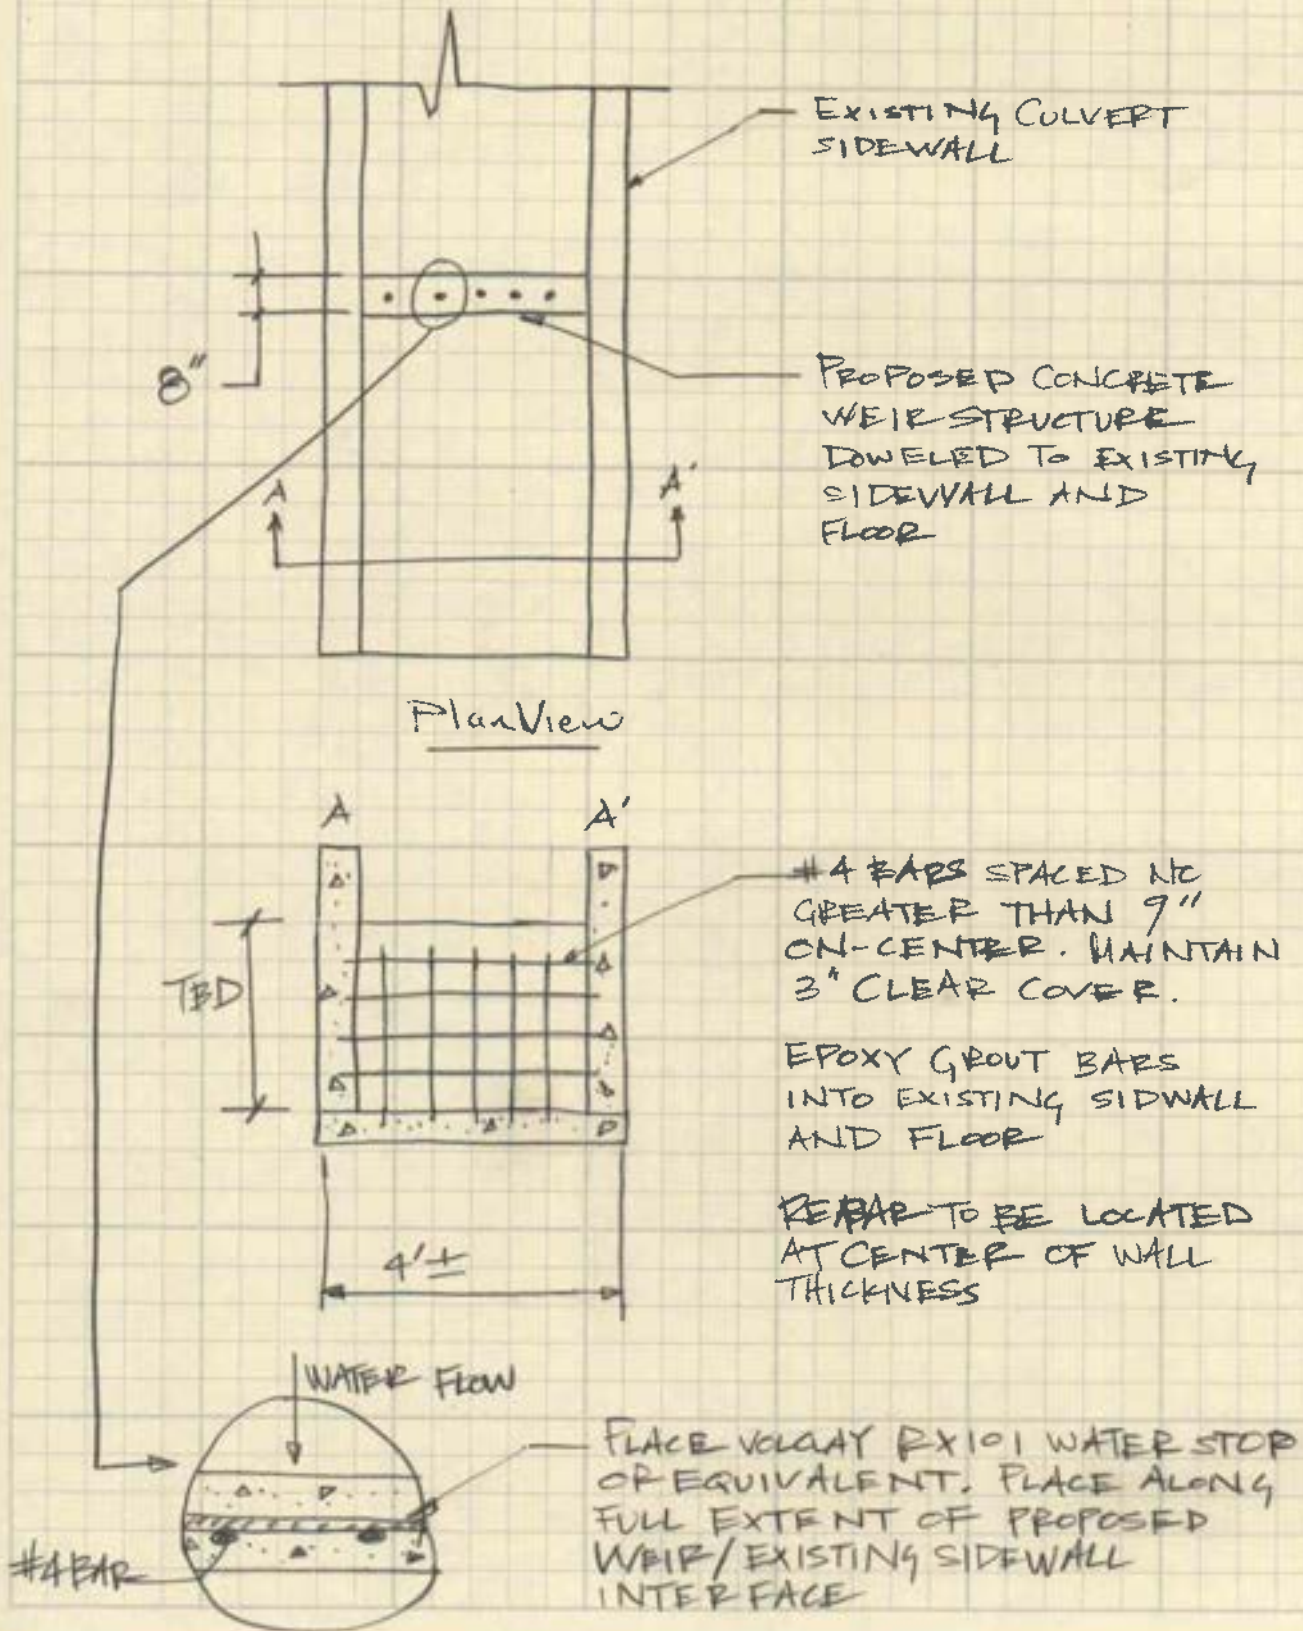 EXISTING CULVERT
SIDEWALL
8"
PROPOSED CONCRETE
WEIR STRUCTURE
DOWELED TO EXISTING
SIDEWALL AND
FLOOR
A A'
Plan View
A A'
#4 BARS SPACED NO
GREATER THAN 9"
ON-CENTER. MAINTAIN
3" CLEAR COVER.
TBD
EPOXY GROUT BARS
INTO EXISTING SIDWALL
AND FLOOR
REBAR TO BE LOCATED
AT CENTER OF WALL
THICKNESS
4'±
WATER FLOW
PLACE VOLCLAY RX101 WATER STOP
OR EQUIVALENT. PLACE ALONG
FULL EXTENT OF PROPOSED
WEIR/EXISTING SIDEWALL
INTERFACE
#4 BAR